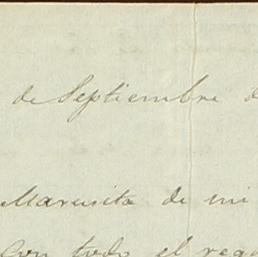 de Septiembre d
Marusita de mi
Con todo el rego